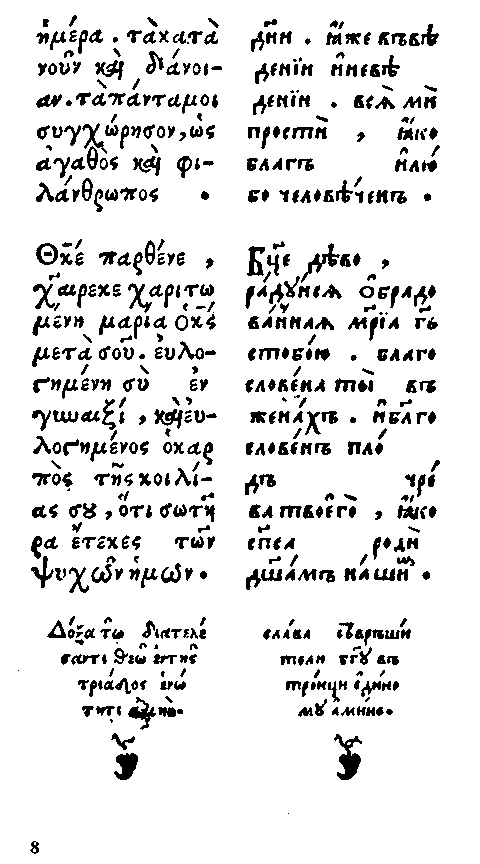 ἡμέρα . τὰ κατὰ
νοῦν καὶ διάνοι-
αν . τὰ πάντα μοι
συγχώρησον, ὡς
ἀγαθὸς καὶ φι-
λάνθρωπος .
Θκ͂ε παρθένε ,
χαῖρε κε χαριτω
μένη μαρία ὁ κς͂
μετὰ σοῦ . ἐυλο-
γημένη σὺ ἐν
γυναιξί , καὶ ἐυ-
λογημένος ὁ καρ
πὸς τῆς κοιλί-
ας σȣ , ὅτι σωτῆ
ρα ἔτεκες τῶν
ψυχῶν ἡμῶν .
Δόξα τῶ διατελέ
σαντι θεῶ ἐν τῆς
τριάδος ἑνό
τητι
дн҃и . ꙗ҆́же въвѣ
денїи и҆ невѣ
денїи . всѧ̀ мѝ
простѝ , ꙗ҆́ко
благъ и҆ лю
бо человѣченъ .
Бц҃е дѣ́во ,
ра́дꙋйсѧ О҆брадо
ва́ннаѧ мр҃їа гь҃
стобо́ю . благо
слове́на ты̀ въ
жена́хъ . и҆ бл҃го
слове́нъ пло́
дъ чре́
ва твоего̀ , ꙗ҆́ко
сп҃са родѝ
дш҃а́мъ на́шиⷨ .
слава съвръши
тели бг҃ꙋ въ
троици е҆дино
мꙋ а҆минь .
8